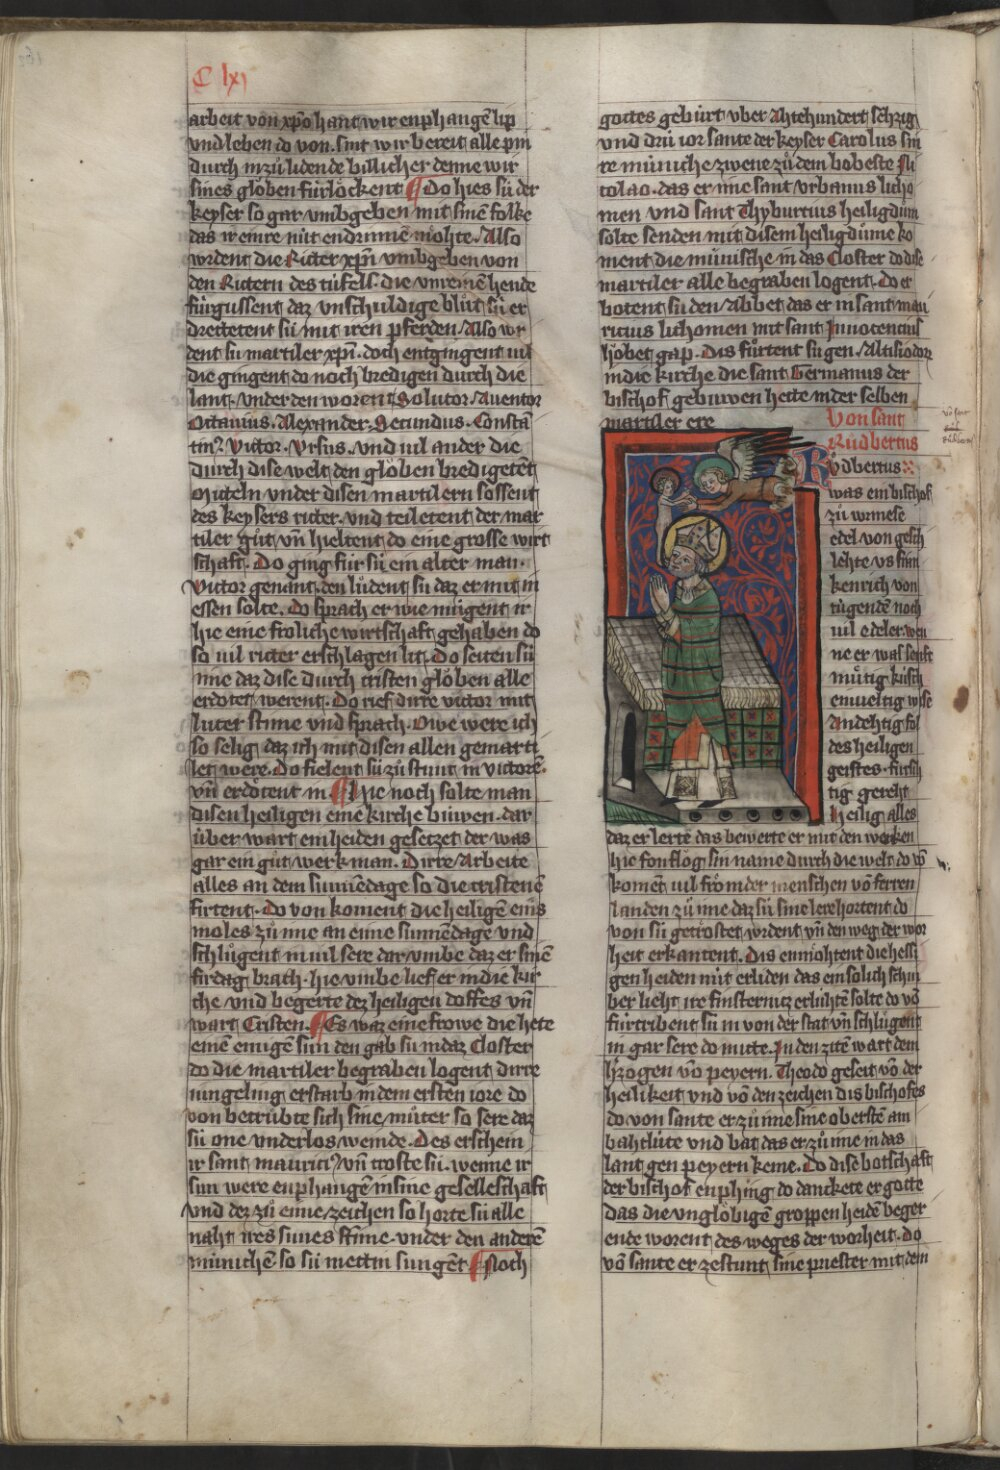 C lxi
arbeit von xpo hant wir enphangē lip
vnd leben do von. sint wir bereit alle pin
durch in zů lidende billicher denne wir
sines glǒben fürlǒckent ¶ Do hies sü der
keyser so gar vmbgeben mit sinē folke
das ir einre nüt endrinnē mǒhte. Also
wrdent die Ritter xpn̄ vmbgeben von
den Rittern des tüfels. die vnreinē hende
fürgussent daz vnschuldige blůt sü er
drettetent sü mit iren pferden. Also wr
dent sü martiler xpn̄. doch entgingent vil
die gingent do noch bredigen durch die
lant. vnder den worent Solutor. Auentor
Octauius. Alexander. Secundus. Constā
tin⁹ Victor. Vrsus. vnd vil ander die
durch dise welt den glǒben bredigetēt
Mitteln vnder disen martilern sossent
des keysers ritter. vnd teiletent der mar
tiler gůt vn̄ hieltent do eine grosse wirt
schaft. Do ging für sü ein alter man.
Victor genant. den lůdent sü daz er mit in
essen solte. do sprach er wie mügent ir
hie eine froliche wirtschaft gehaben do
so vil ritter erschlagen lit. Do seiten sü
ime daz dise durch cristen glǒben alle
erdǒtet werent. Do rief dirre victor mit
luter stime vnd sprach. Owe were ich
so selig daz ich mit disen allen gemarti
let were. do fielent sü zů stunt in victorē.
vn̄ erdǒtent in. ¶ Hie noch solte man
disen heiligen eine kirche buwen. dar
über wart ein heiden gesetzet der was
gar ein gůt werkman. Dirre Arbeite
alles an dem sunnēdage so die cristenē
firtent. do von koment die heiligē eins
moles zů ime an eime sunnēdage vnd
schlůgent in vil sere dar vmbe daz er sinē
firdag brach. hie vmbe lief er in die kir
che vnd begerte dez heiligen doffes vn̄
wart Cristen. ¶ Es waz eine frowe die hete
einē einigē sun den gab sü in daz Closter
do die martiler begraben logent dirre
iungeling erstarb in dem ersten iore do
von betrůbte sich sine můter so sere daz
sü one vnderlos weinde. Des erschein
ir sant mauriti⁹ vn̄ troste sü. wenne ir
sun were enphangē in sine geselleschaft
vnd dez zů eime zeichen so horte sü alle
naht ires sunes stime vnder den anderē
münichē so sü mettin sungēt ¶ Noch
gottes gebürt vber Ahtehundert sehzig
vnd drü ior sante der keyser Carolus sin
re müniche zwene zů dem bobeste Ni
colao. das er ime sant vrbanus licho
men vnd sant Thyburtius heiligdům
solte senden mit disem heiligdůme ko
ment die münische in das Closter do dise
martiler alle begraben logent. Do er
botent sü den Abbet das er in sant mau
ricius lichomen mit sant Innocencius
hǒbet gap. Dis fůrtent sü gen Altisiodorz
in die kirche die sant Germanus der
bischof gebuwen hette in der selben
martiler ere
Von sant
Rüdbertus
Rǔdbertus
was ein bischof
zů wrmese
edel von gesch
lehte vs sinē
kenrich von
tugendē noch
vil edeler. wen
ne er was senft
můtig küsch
einueltig wise
Andehtig fol
des heiligen
geistes. fürsch
tig gereht
Heilig alles
daz er lerte das bewerte er mit den werken
hie fon flog sin name durch die welt do vō
komēt vil frǒmder menschen vō ferren
landen zů ime daz sü sine lere hortent do
von sü getrostet wrdent vn̄ den weg der wor
heit erkantent. Dis enmǒhtent die hessi
gen heiden nüt erliden das ein solich schin
ber lieht ire finsternüz erlühtē solte do vō
fürtribent sü in von der stat vn̄ schlůgent
in gar sere do mitte. In den zitē wart dem
hzogen vō peyern. Theodo geseit vō der
heilikeit vnd vō den zeichen dis bischofes
do von sante er zů ime sine oberstē am
bahtlüte vnd bat das er zů ime in das
lant gen peyern keme. Do dise botschaft
der bischof enphing do danckete er gotte
das die vnglǒbigē groppen heidē beger
ende worent des weges der worheit. do
vō sante er zestunt sine priester mit dem